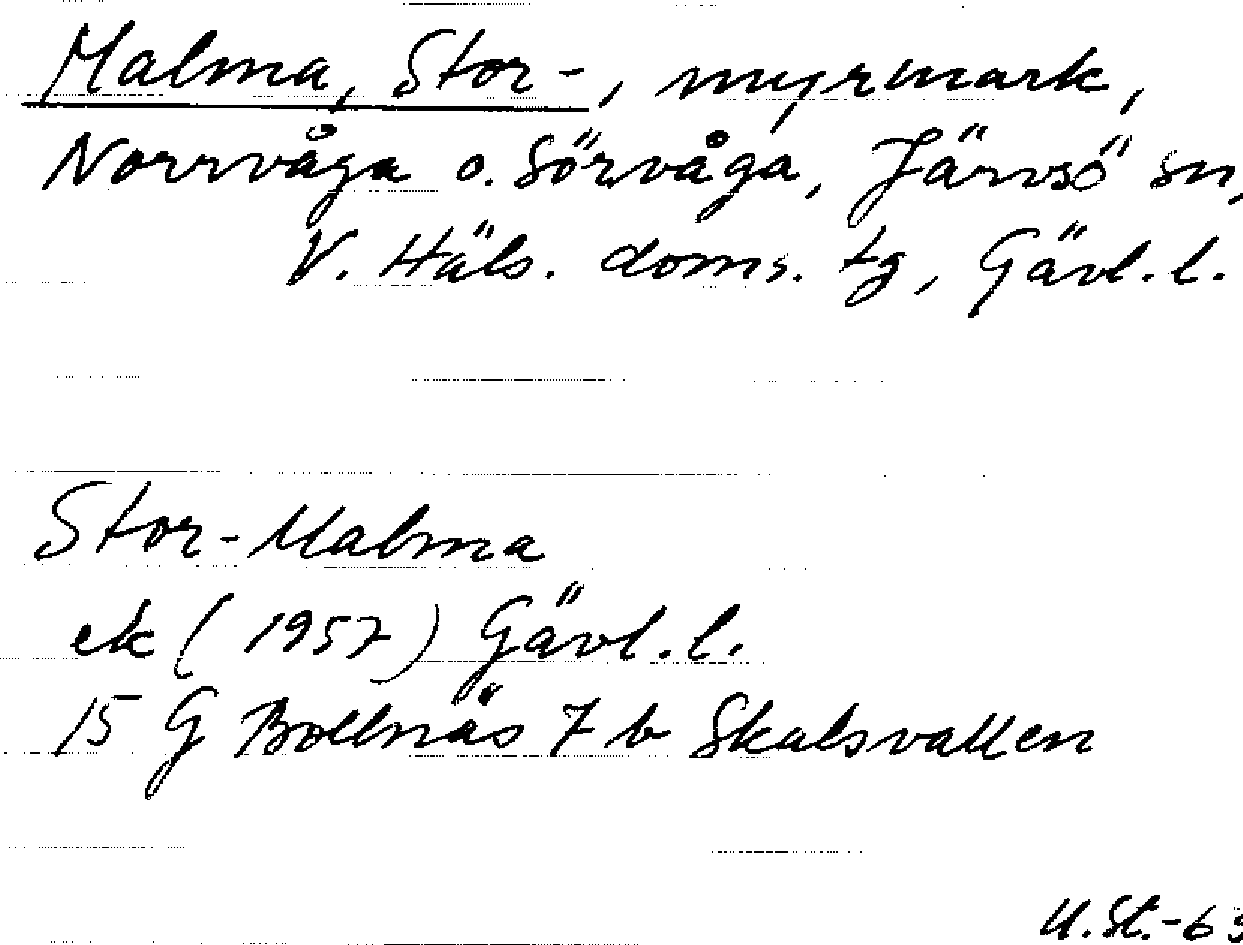 Malma, Stor-, myrmark,
Norrvåga o. Sörvåga, Järvsö sn,
V. Häls. doms. tg, Gävl. l.
Stor-Malma
ek (1957) Gävl. l.
15 G Bollnäs 7 b Skalsvallen
U. St.-63